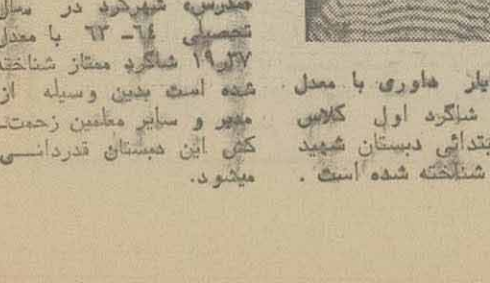 یار داوری با معدل
شاگرد اول کلاس
بتدائی دبستان شهید
شناخته شده است .
مدرسه شهرکرد در سال
تحصیلی ٦٤ـ ٦٣ با معدل
١٩ر٣٧ شاگرد ممتاز شناخته
شده است بدین وسیله از
مدیر و سایر معلمین زحمت‌ـ
کش این دبستان قدردانـــی
میشود.